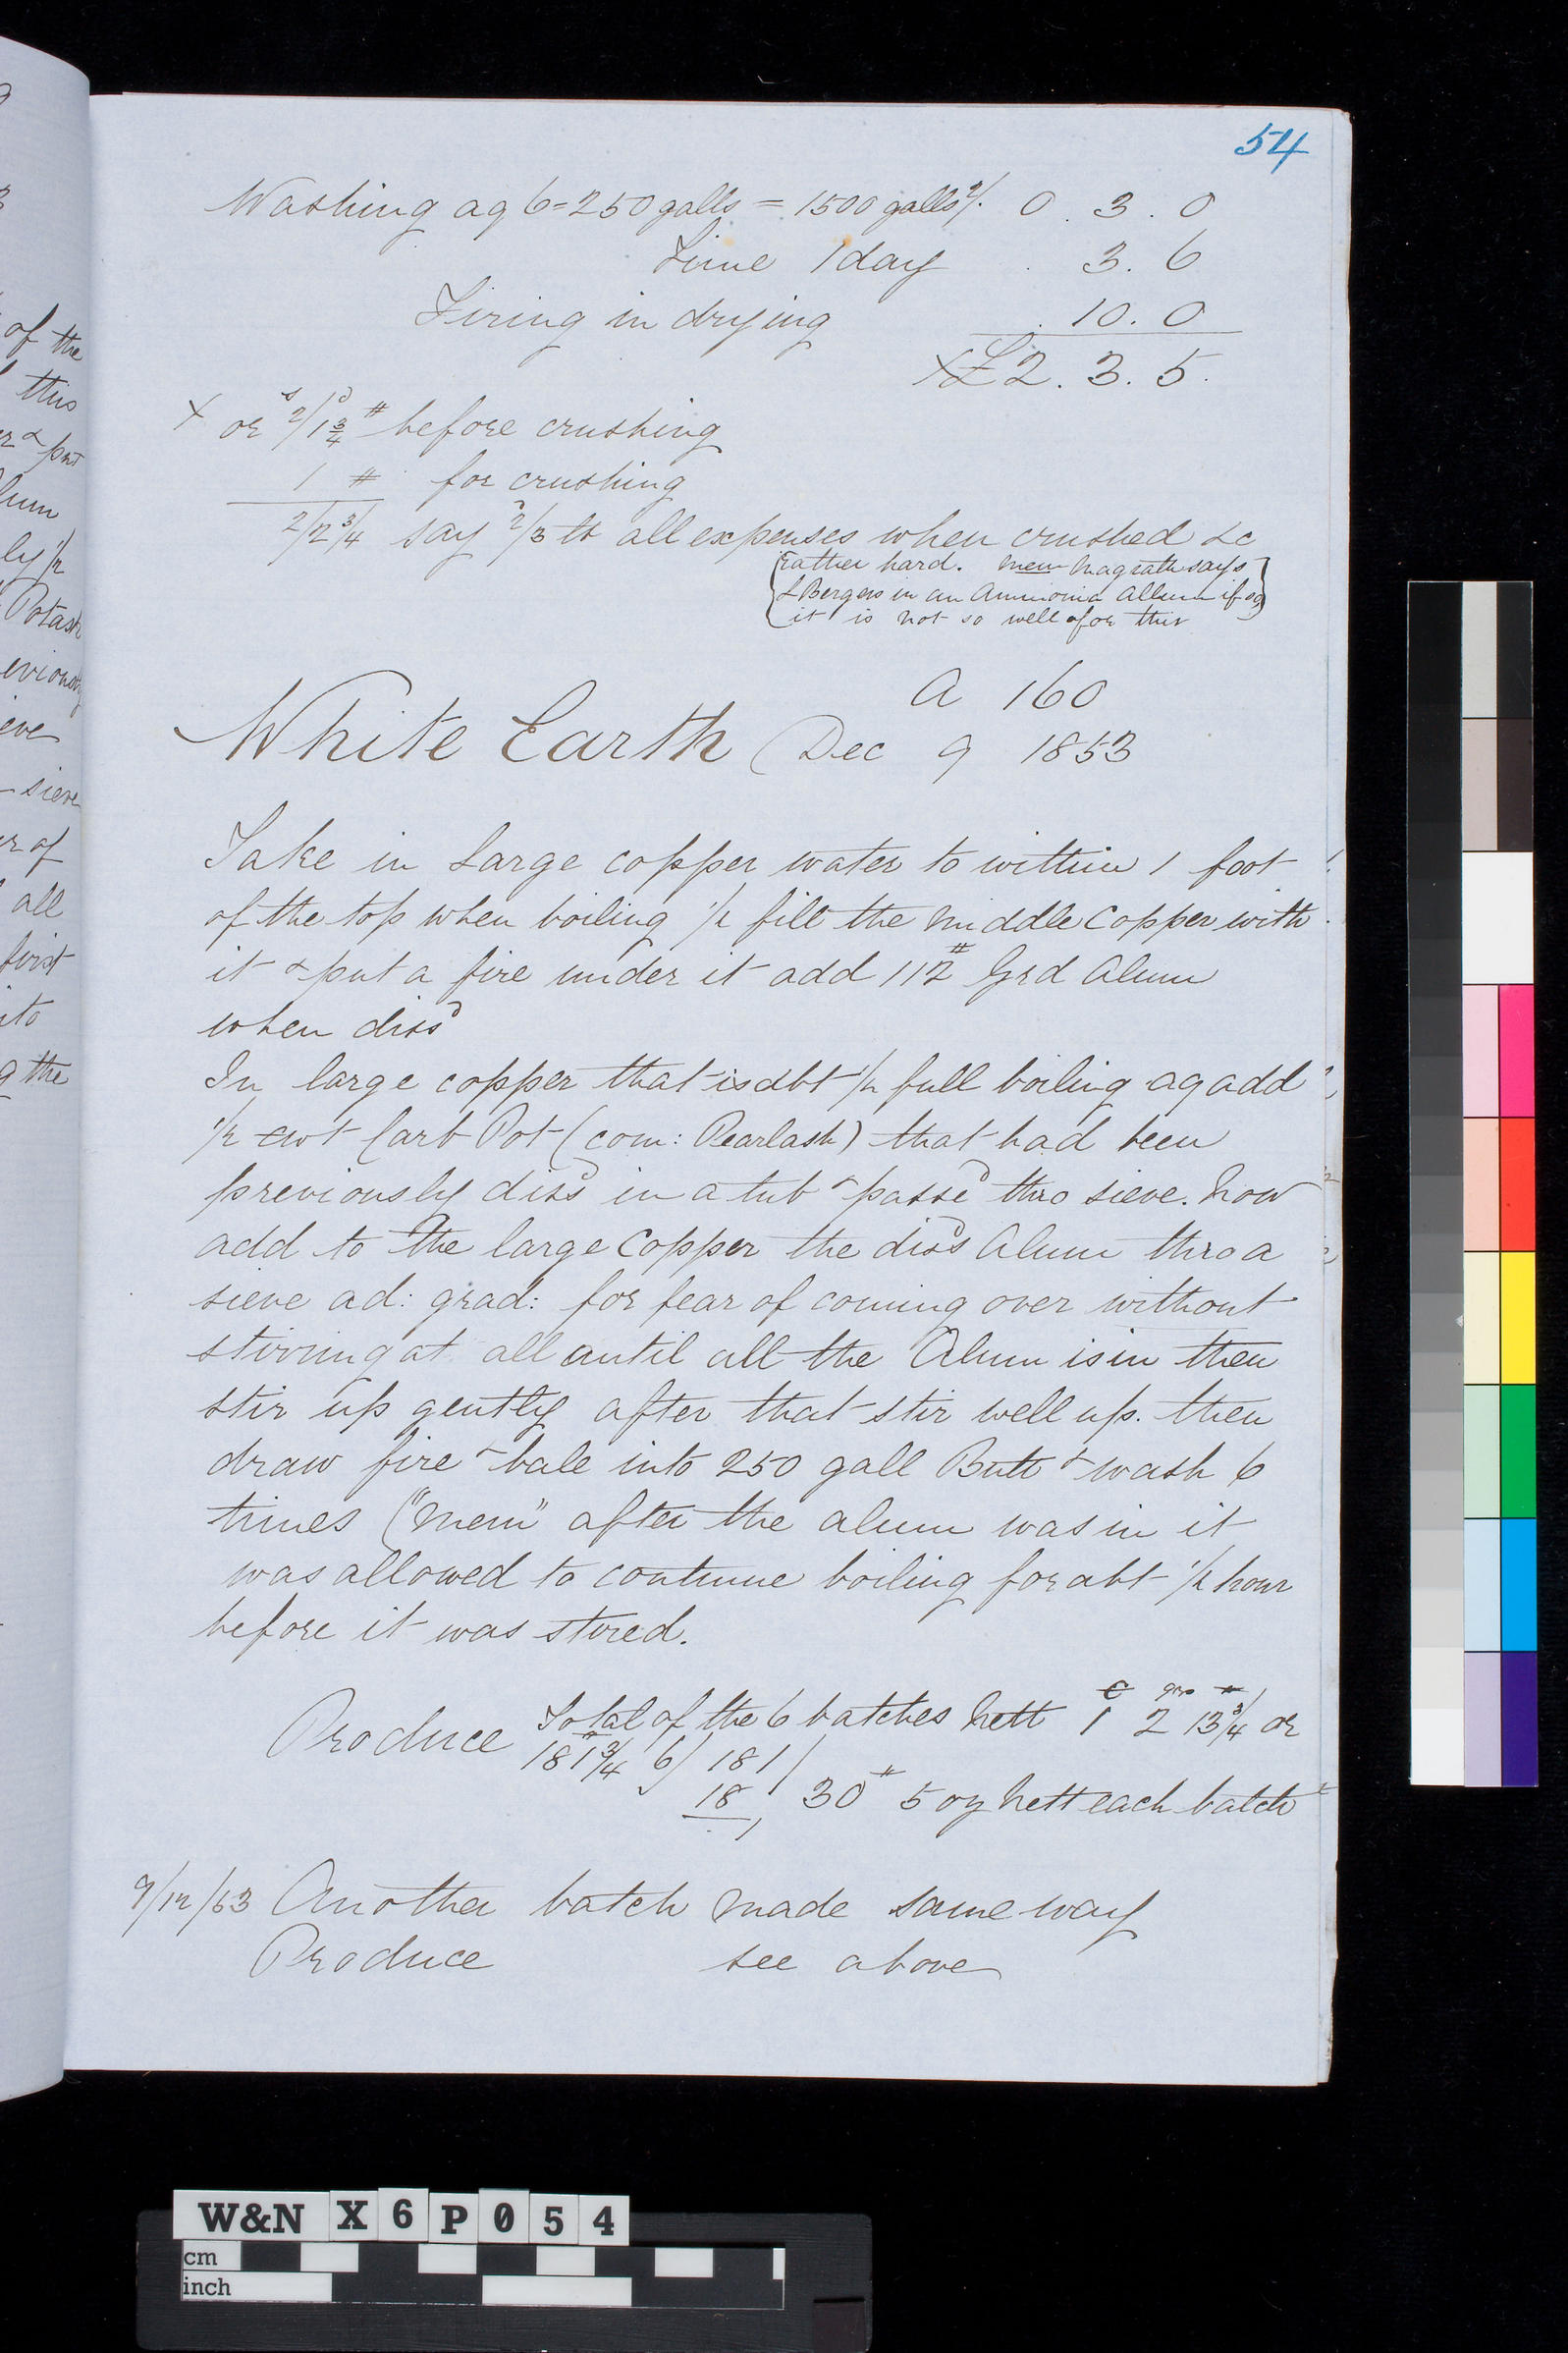 54
Washing aq 6=250 galls = 1500 galls 2/. 0 . 3 . 0
Time 1 day . 3 . 6
Firing in drying . 10 . 0
X £2 . 3 . 5 .
X or 2/1 3/4 # before crushing
1 # for crushing
2/2 3/4 say 2/3 lb all expenses when crushed &c
{rather hard. Mem Magrath says}
{L Bergers in an Ammonia Allum if so}
{it is not so well for this
A 160
White Earth (Dec 9 1853
Take in Large copper water to within 1 foot
of the top when boiling 1/2 fill the Middle Copper with
it & put a fire under it add 112# Grd Alum
when dissd
In large copper that is abt 1/2 full boiling aq add
1/2 cwt Carb Pot (com: Pearlash) that had been
previously dissd in a tub & passed thro sieve. Now
add to the large Copper the dissd Alum thro a
sieve ad: grad: for fear of coming over without
stirring at all until all the Alum is in then
stir up gently after that stir well up. then
draw fire & bale into 250 gall Butt & wash 6
times ("Mem" after the alum was in it
was allowed to continue boiling for abt 1/2 hour
before it was stired.
C qrs #
Produce Total of the 6 batches Nett 1 2 13 3/4 or
181 3/4 6) 181/
18 30# 5 oz Nett each batch
9/12/53 Another batch Made same way
Produce see above
of the
this
& put
Potash
sieve
all
first
the
W&N X6P054
cm
inch